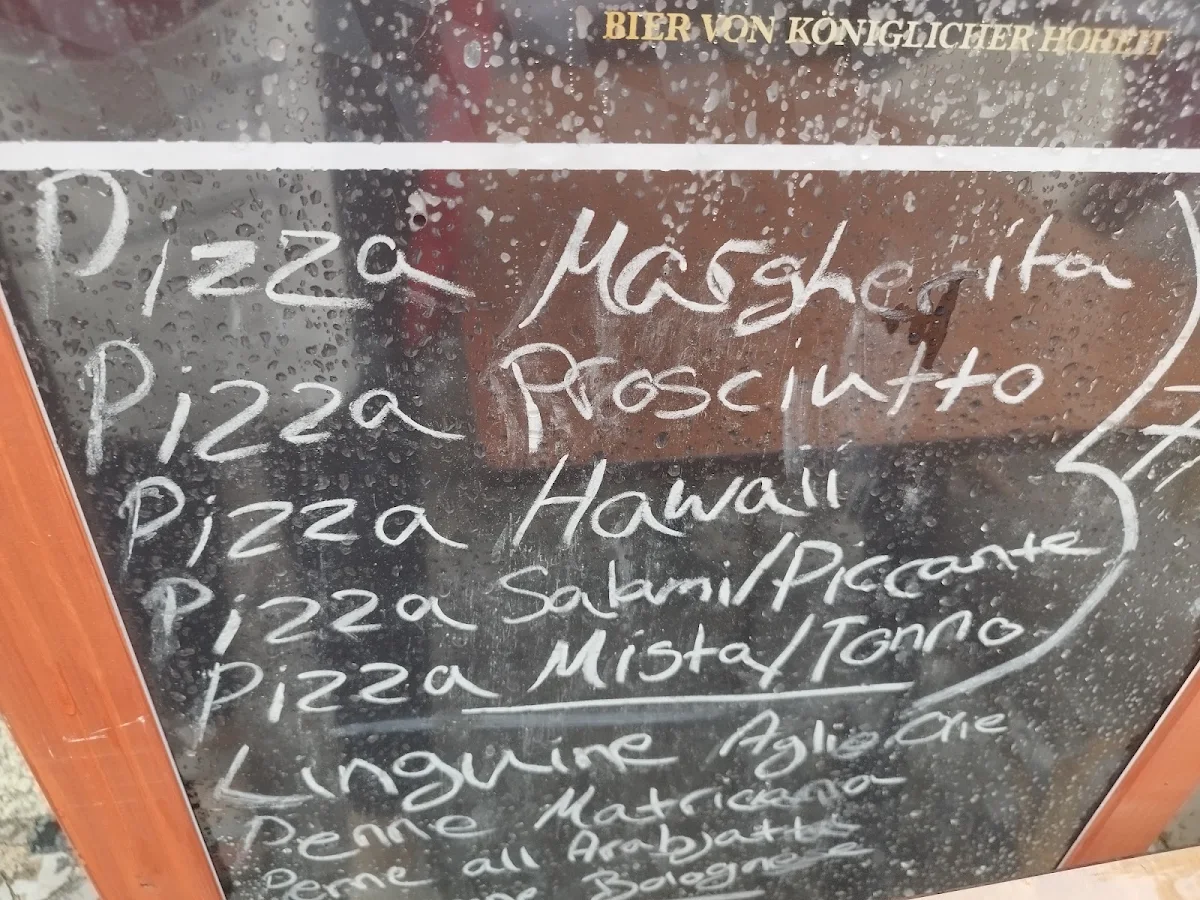 BIER VON KÖNIGLICHER HOHEIT
Pizza Margherita
Pizza Prosciutto
Pizza Hawaii
Pizza Salami/Piccante
Pizza Mista/Tonno
Linguine Aglio Olie
Penne Matriciana
Penne all Arabjatta
Bolognese